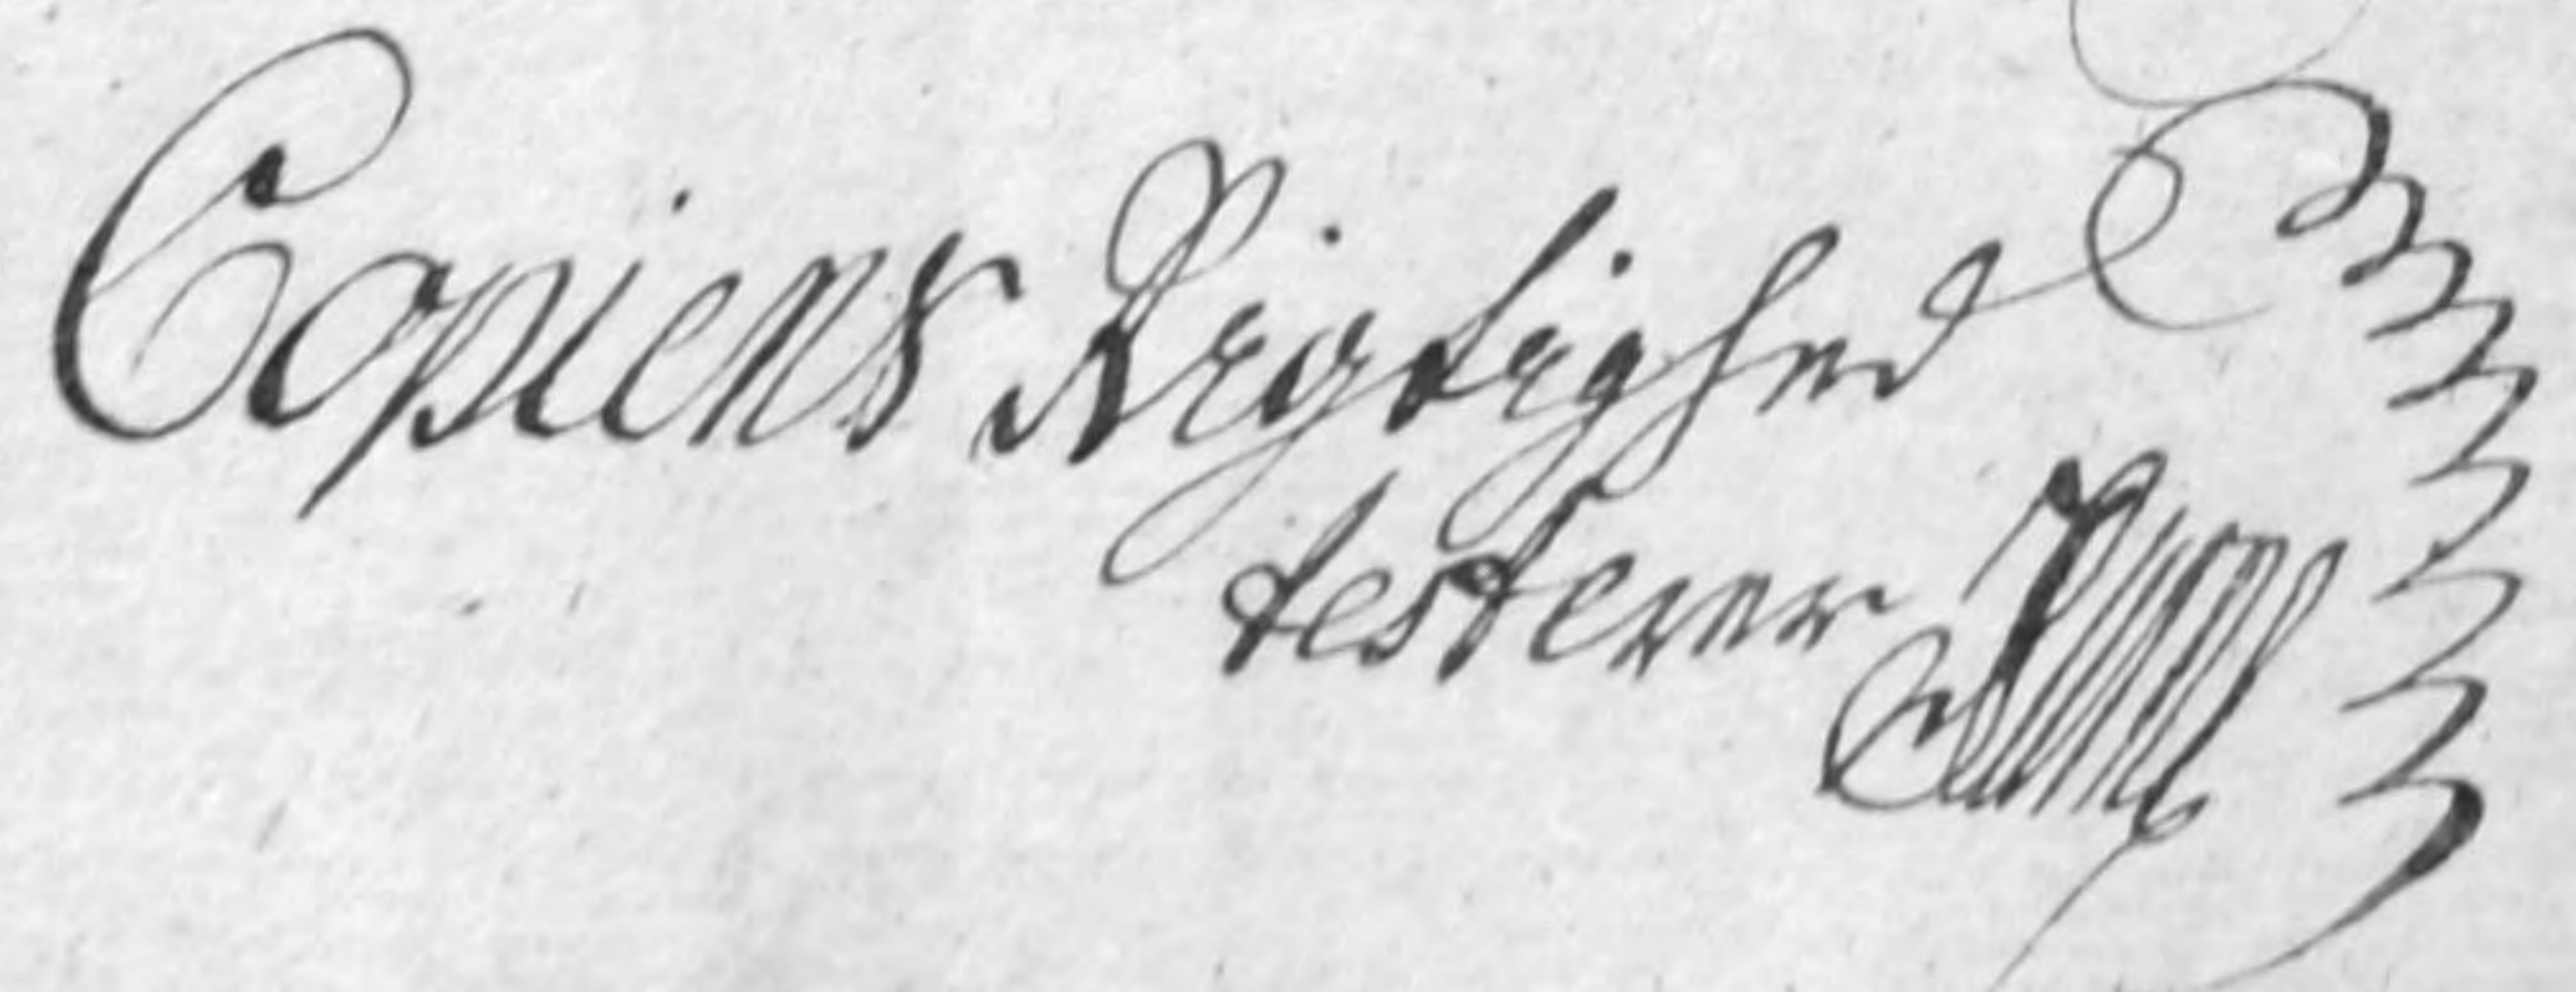 Copiens Rigtighed
testerer